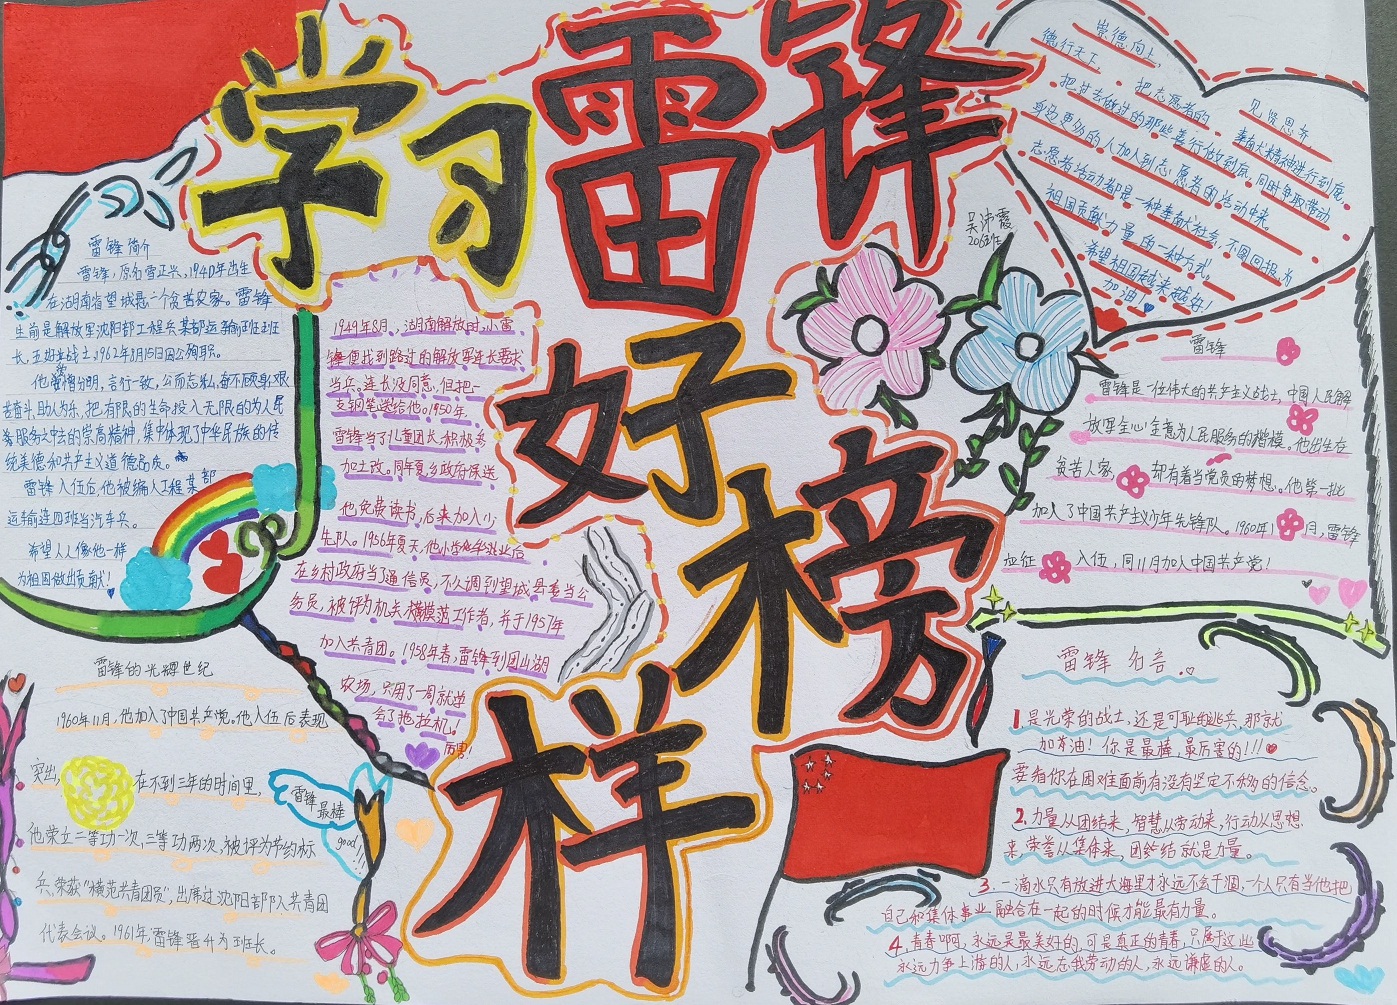 学习雷锋好榜样
雷锋简介
雷锋,原名雷正兴,1940年出生
在湖南省望城县一个贫苦农家。雷锋
生前是解放军沈阳部工程兵某部运输班班
长,五好战士,1962年8月15日因公殉职。
他爱憎分明,言行一致,公而忘私,奋不顾身,艰
苦奋斗,助人为乐,把有限的生命投入无限的为人民
务服务之中去的崇高精神,集中体现了中华民族的传
统美德和共产主义道德品质。
雷锋入伍后,他被编入工程某部
运输连四班当汽车兵。
希望人人像他一样
为祖国做出贡献!
1949年8月,湖南解放时,小雷
锋便找到路过的解放军连长要求
当兵。连长没同意,但把一
支钢笔送给他。1950年,
雷锋当了儿童团长,积极参
加土改。同年夏,乡政府保送
他免费读书,后来加入少
先队。1956年夏天,他小学毕业后
在乡村政府当了通信员,不久调到望城县委当公
务员,被评为机关模范工作者,并于1957年
加入共青团。1958年春,雷锋到团山湖
农场,只用了一周就学
会了拖拉机!
厉害!
雷锋的光辉世纪
1960年11月,他加入了中国共产党。他入伍后表现
突出,在不到三年的时间里,
他荣立二等功一次,三等功两次,被评为节约标
兵,荣获“模范共青团员”,出席过沈阳部队共青团
代表会议。1961年,雷锋晋升为班长。
雷锋最棒
good!!!
崇德向上,
德行天下
把志愿者的
见贤思齐
把过去做过的那些善行做到底,
奉献精神进行到底,
同时争取带动
身边更多的人加入到志愿者的活动中来。
志愿者活动都是一种奉献社会,不图回报,为
祖国贡献力量的一种方式,
希望祖国越来越好!
加油!
吴沛霞
206班
雷锋
雷锋是一位伟大的共产主义战士,中国人民解
放军全心全意为人民服务的楷模。他出生在
贫苦人家,却有着当党员的梦想。他第一批
加入了中国共产主义少年先锋队。1960年1月,雷锋
应征入伍,同11月加入中国共产党!
雷锋名言
1.是光荣的战士,还是可耻的逃兵,那就
加芳油!你是最棒,最厉害的!!!
要看你在困难面前有没有坚定不移的信念。
2.力量从团结来,智慧从劳动来,行动从思想
来,荣誉从集体来,团结就是力量。
3.一滴水只有放进大海里才永远不会干涸,一个人只有当他把
自己和集体事业融合在一起的时候才能最有力量。
4.青春啊,永远是最美好的,可是真正的青春,只属于这些
永远力争上游的人,永远忘我劳动的人,永远谦虚的人。